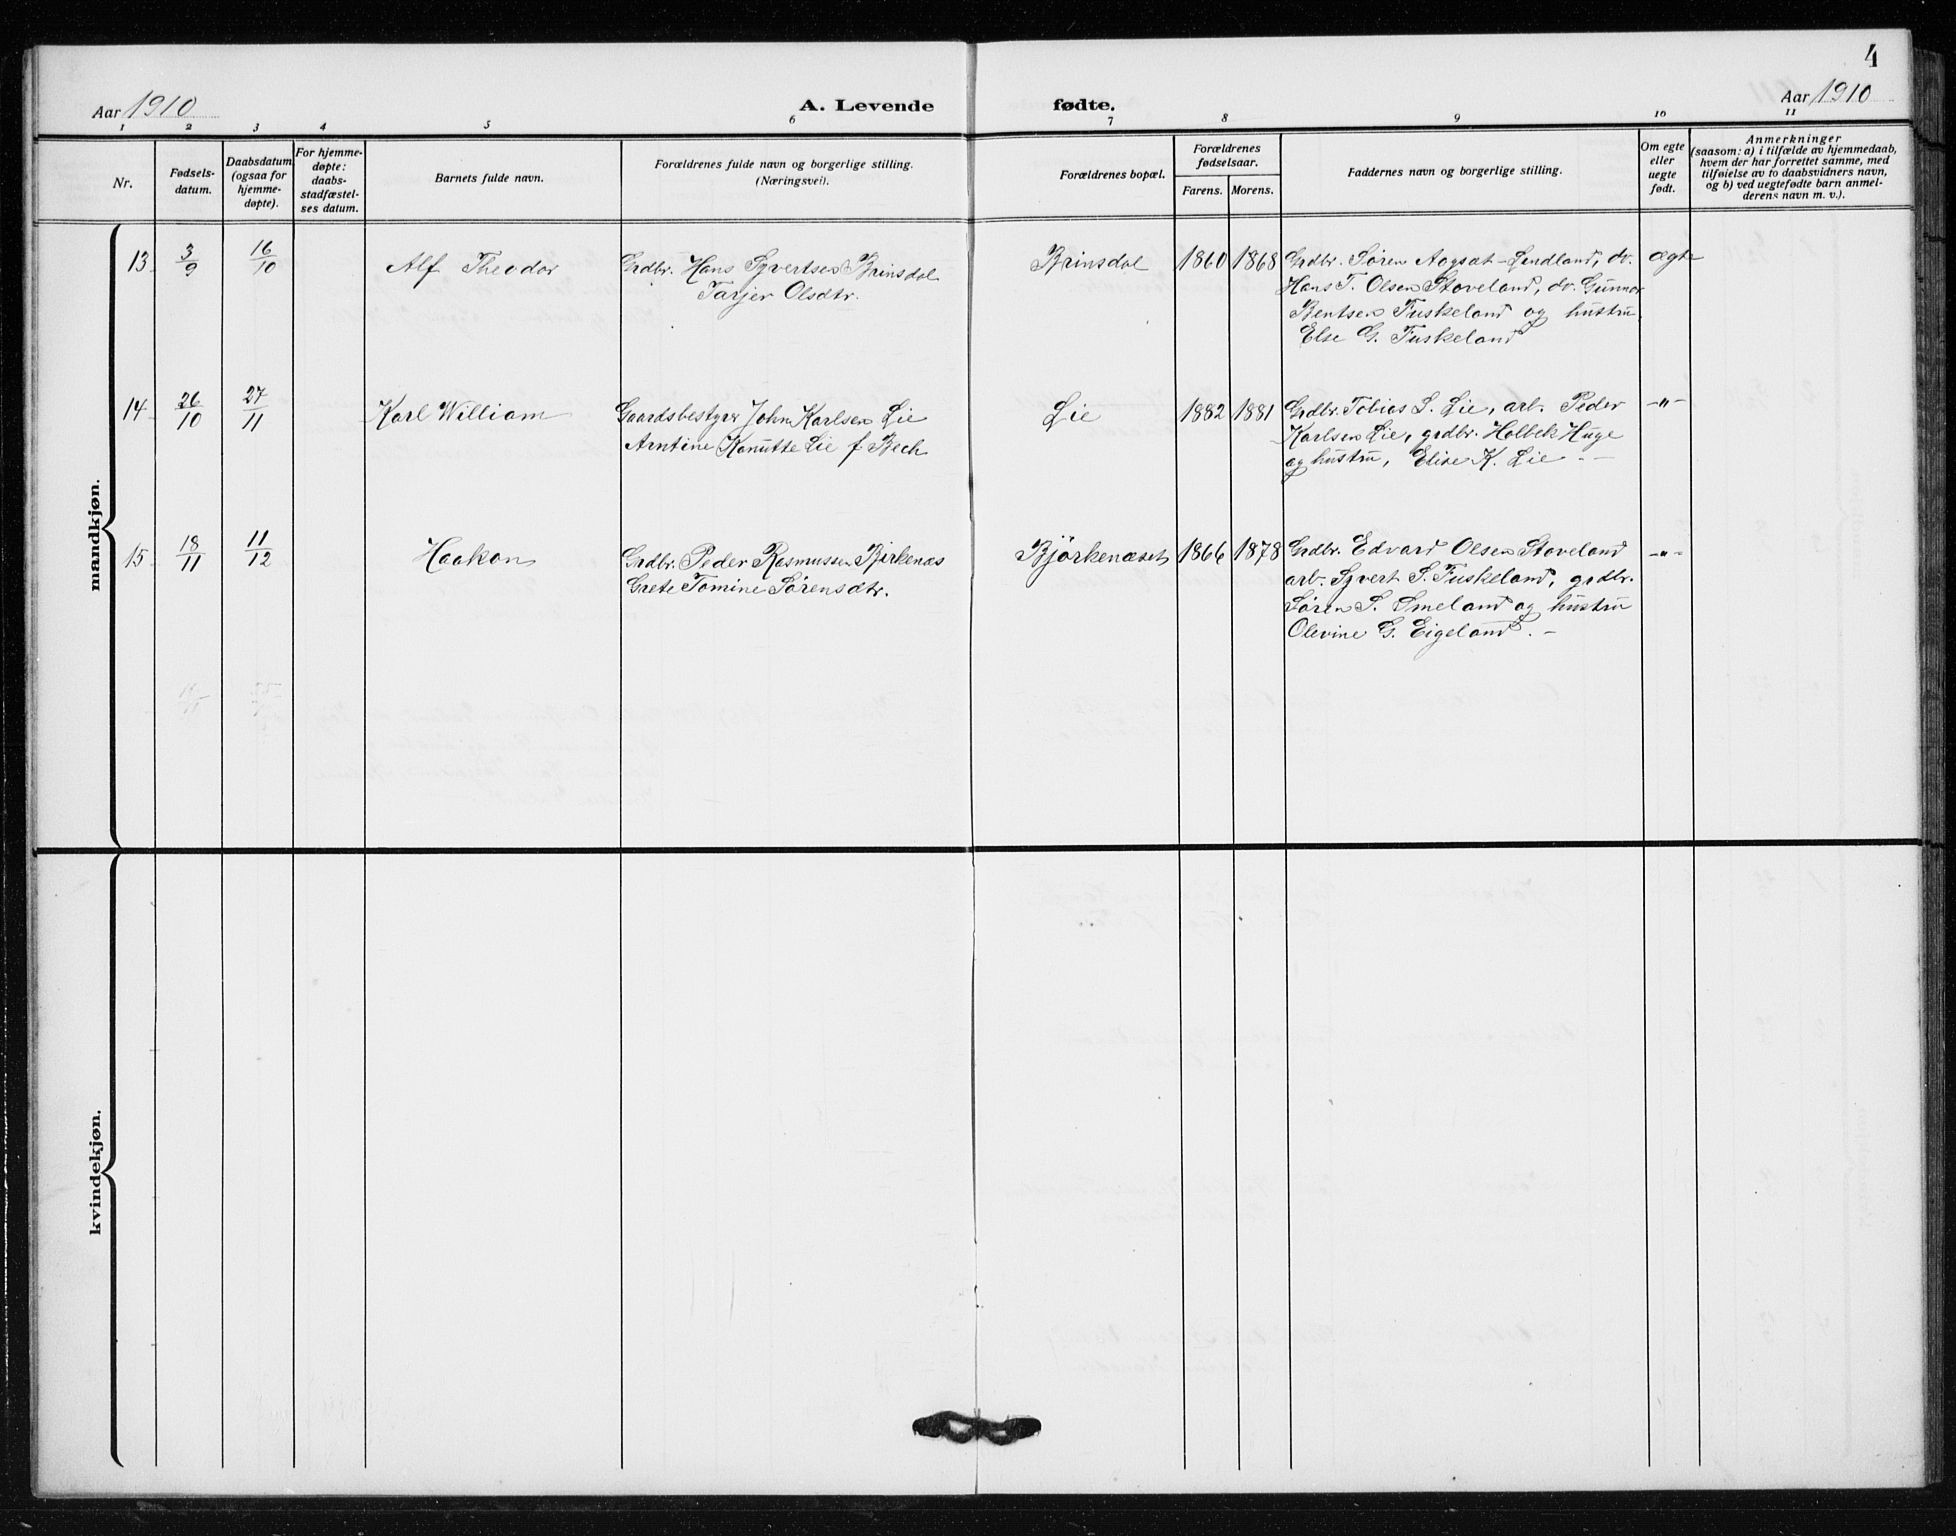 4
Aar 1910 A. Levende fødte. Aar 1910
1 2 3 4 5 6 7 8 9 10 11
Nr.
Fødsels-
datum.
Daabsdatum
(ogsaa for
hjemme-
døpte).
For hjemme-
døpte:
daabs-
stadfæstel-
ses datum.
Barnets fulde navn.
Forældrenes fulde navn og borgerlige stilling.
(Næringsvei).
Forældrenes bopæl.
Forældrenes
fødselsaar.
Farens. Morens.
Faddernes navn og borgerlige stilling.
Om egte
eller
uegte
født.
Anmerkninger
(saasom: a) i tilfælde av hjemmedaab,
hvem der har forrettet samme, med
tilføielse av to daabsvidners navn,
og b) ved uegtefødte barn anmel-
derens navn m. v.).
mandkjøn.
13 3/9 16/10 Alf Theodor Grdbr. Hans Syvertsen Brinsdal Brinsdal 1860 1868 Grdbr. Søren Aogsat-Lendland, do. ægte
Tarjer Olsdtr. Hans T. Olsen Stoveland, do. Gunnar
Bentsen Fuskeland og hustru
Else G. Fuskeland
14 26/10 27/11 Karl William Gaardsbestyrer John Karlsen Lie Lie 1882 1881 Grdbr. Tobias S. Lie, arb. Peder -"-
Arntine Kanutte Lie f Bech Karlsen Lie, grdbr. Holbek Huge
og hustru, Elise K. Lie. -
15 18/11 11/12 Haakon Grdbr. Peder Rasmussen Birkenæs Björkenæset 1866 1878 Grdbr. Edvard Olsen Stoveland -"-
Grete Tomine Sørensdtr. arb. Syvert S. Fuskeland, grdbr.
Søren S. Smeland og hustru
Olevine G. Eigeland. -
kvindekjøn.